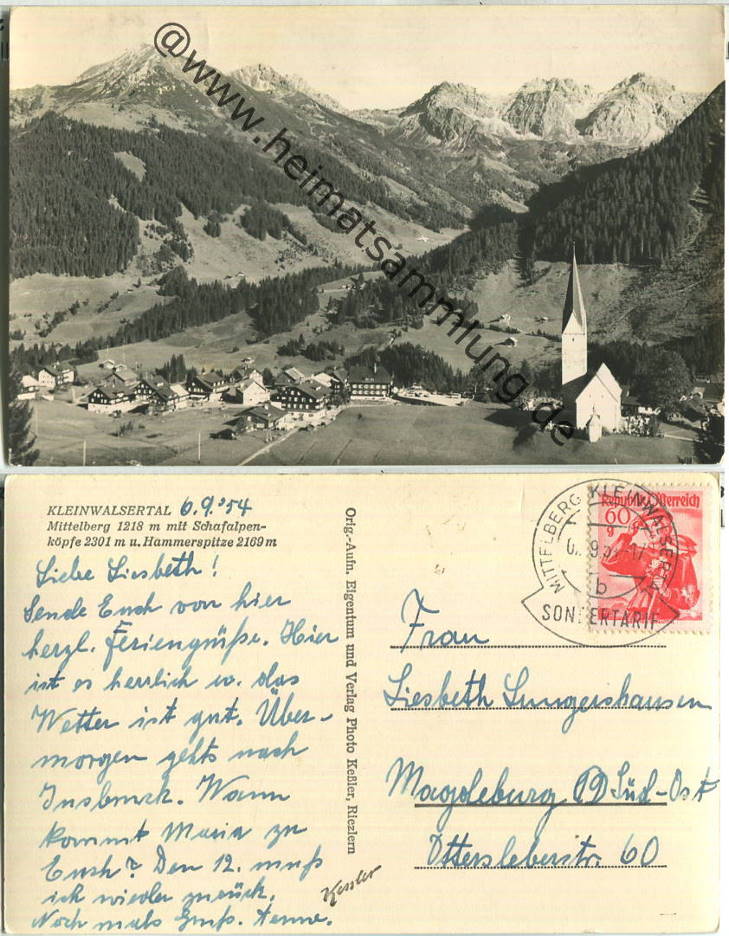 @www.heimatsammlung.de
KLEINWALSERTAL 6.9.'54
Mittelberg 1218 m mit Schafalpen-
köpfe 2301 m u. Hammerspitze 2169 m
Liebe Liesbeth!
Sende Euch von hier
herzl. Feriengrüße. Hier
ist es herrlich u. das
Wetter ist gut. Über-
morgen gehts nach
Insbruck. Wann
kommt Maria zu
Euch? Den 12. muß
ich wieder zurück.
Nochmals Gruß. Aenne.
Orig.-Aufn. Eigentum und Verlag Photo Keßler, Riezlern
Kessler
MITTELBERG KLEINWALSERTAL
b
SONDERTARIF
Republik Österreich
60 g
Frau
Liesbeth Lungershausen
Magdeburg Süd-Ost
Ottersleberstr. 60